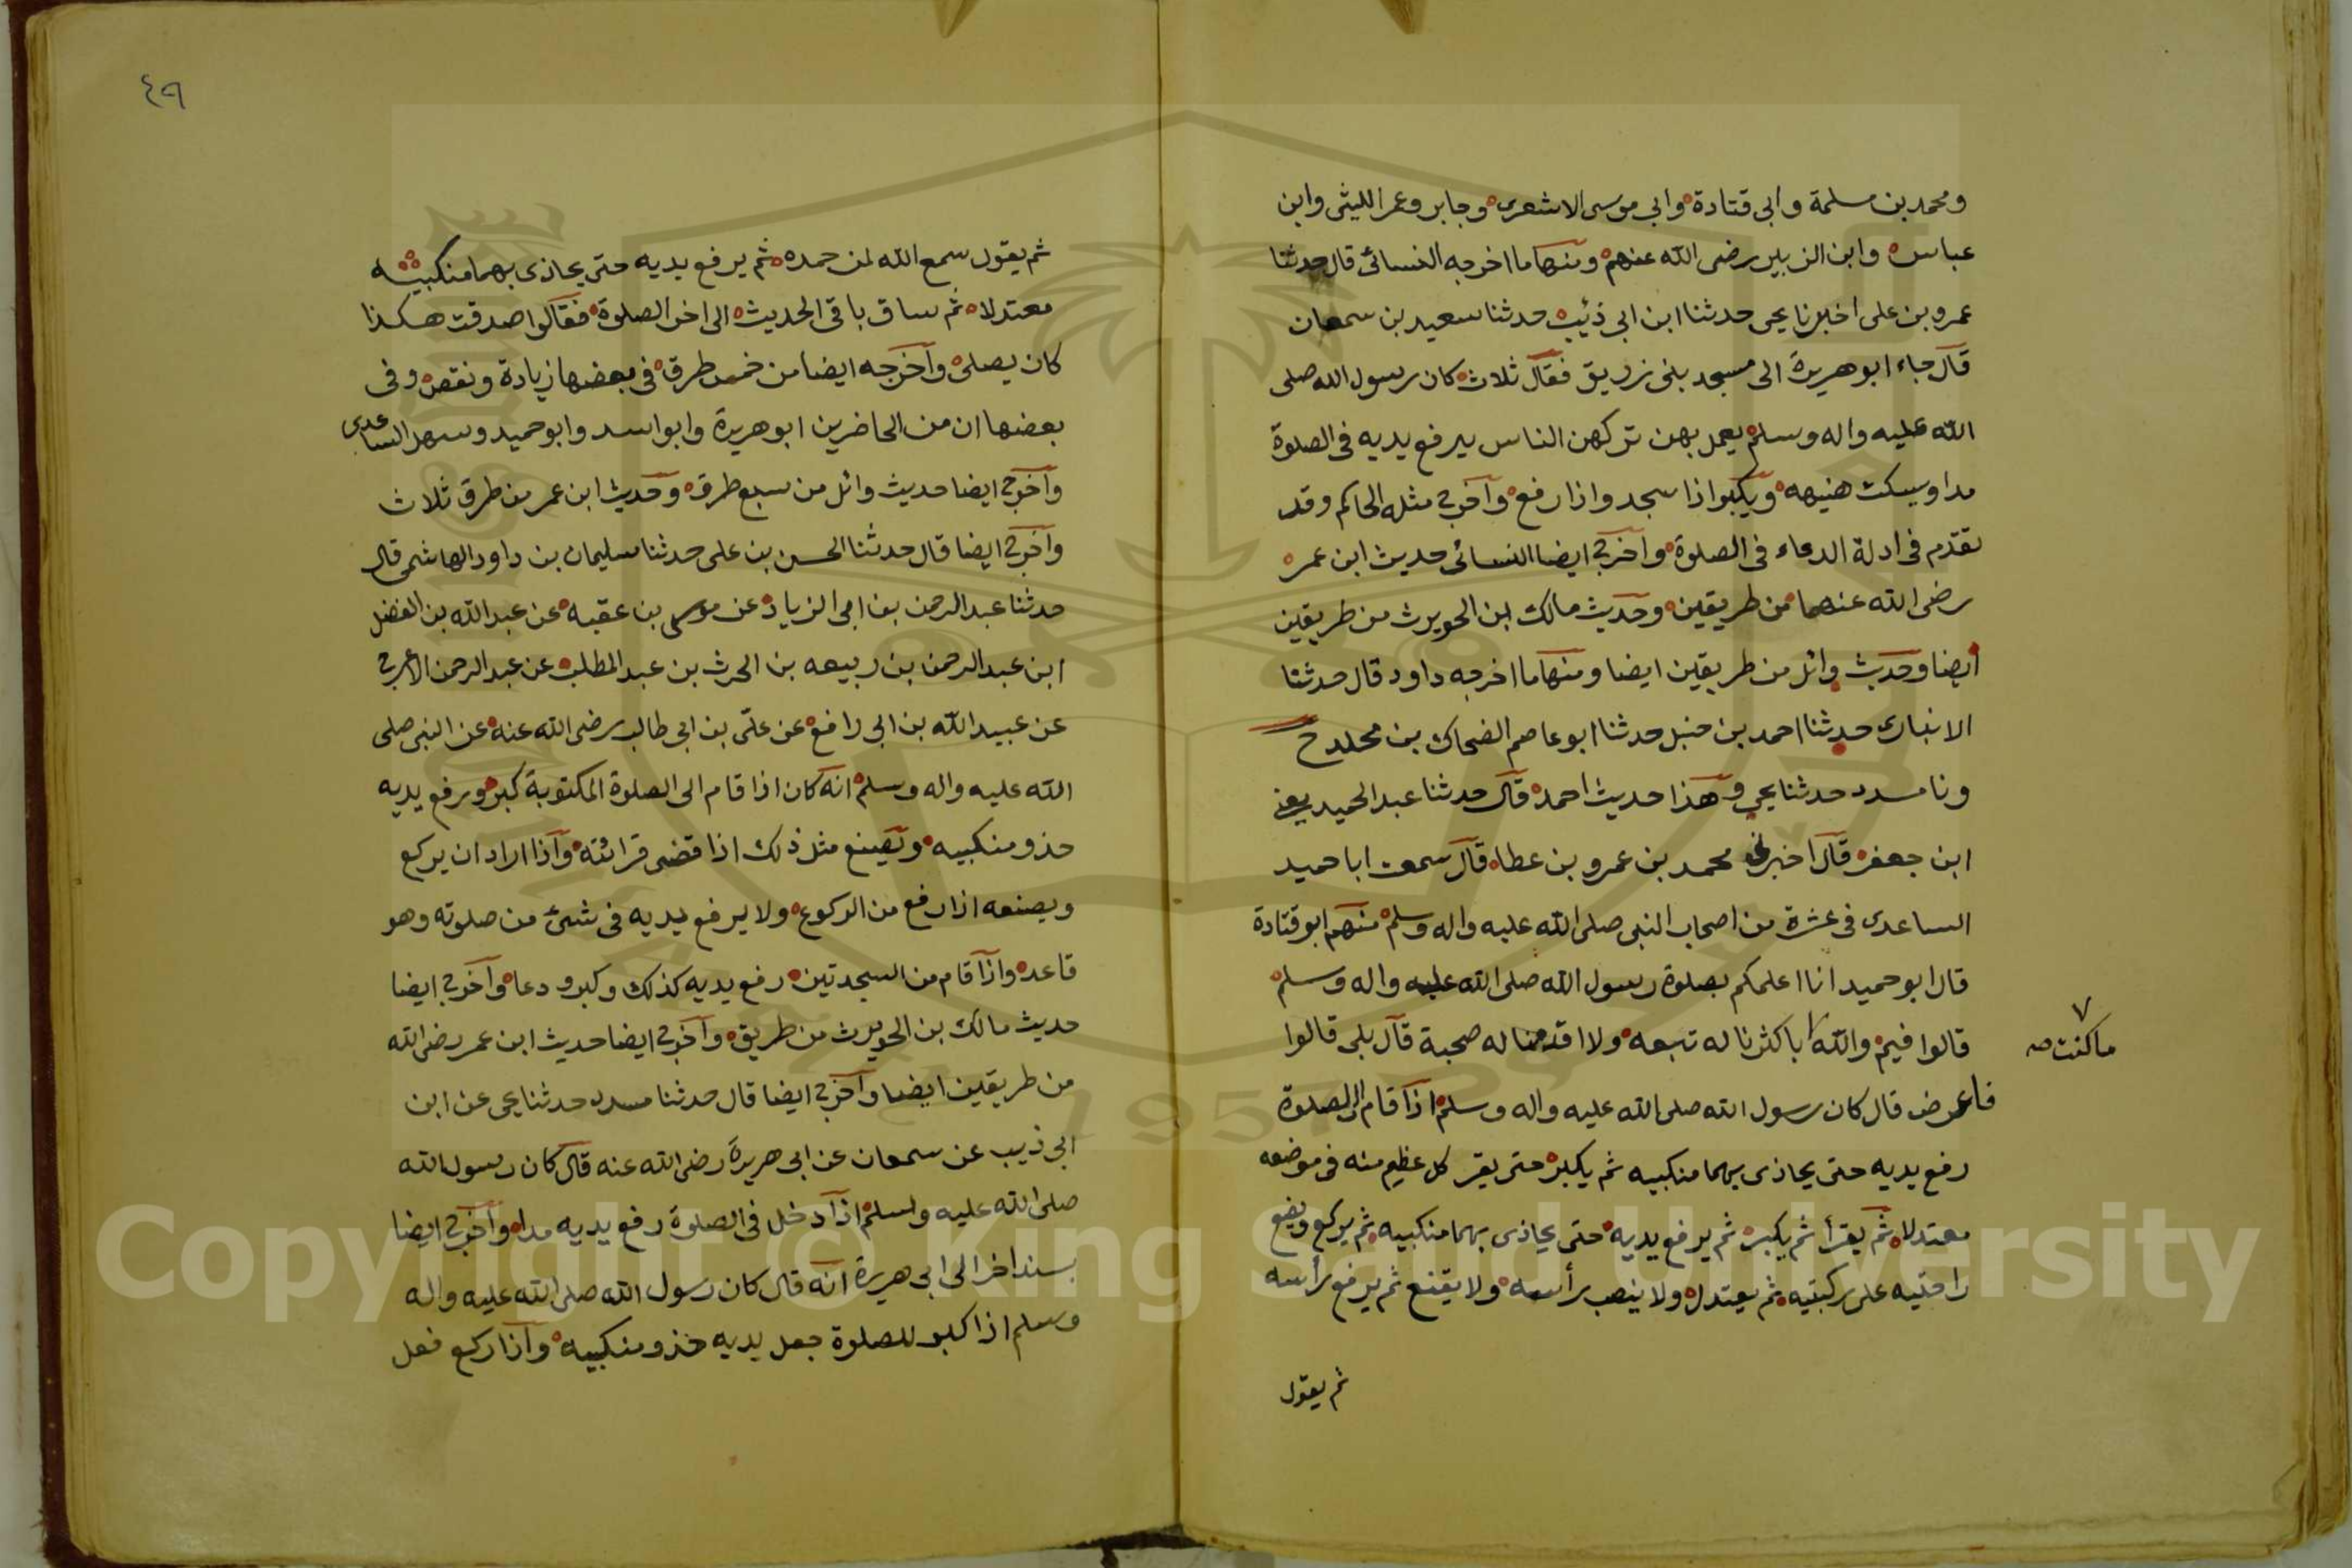 ومحمد بن مسلمة وابي قتادة وابي موسى الاشعرى وجابر وعمر الليثى وابن
عباس وابن الزبير رضى الله عنهم ومنها ما اخرجه النسائى قال حدثنا
عمرو بن على اخبرنا يحى حدثنا ابن ابي ذئيب حدثنا سعيد بن سمعان
قال جاء ابو هريرة الى مسجد بنى زريق فقال ثلاث كان رسول الله صلى
الله عليه واله وسلم يعمل بهن تركهن الناس يرفع يديه فى الصلوة
مدا ويسكت هنيهه ويكبر اذا سجد واذا رفع وآخرج مثله الحاكم وقد
تقدّم فى ادلة الدعاء فى الصلوة وآخرج ايضا النسائى حديث ابن عمر
رضى الله عنهما من طريقين وحديث مالك ابن الحويرث من طريقين
ايضا وحديث وائل من طريقين ايضا ومنها ما اخرجه داود قال حدثنا
الانبارى حدثنا احمد بن حنبل حدثنا ابو عاصم الضحاك بن مخلد ح
ونا مسدد حدثنا يحي وهذا حديث احمد قال حدثنا عبد الحميد يعنى
ابن جعفر قال اخبرنى محمد بن عمرو بن عطا قال سمعت ابا حميد
الساعدى فى عشرة من اصحاب النبى صلى الله عليه واله وسلم منهم ابو قتادة
قال ابو حميد انا اعلمكم بصلوة رسول الله صلى الله عليه واله وسلم
قالوا فيم والله باكثرنا له تبعه ولا اقدمنا له صحبة قال بلى قالوا
ما كنت صح
فاعرض قال كان رسول الله صلى الله عليه واله وسلم اذا قام الى الصلوة
رفع يديه حتى يحاذى بهما منكبيه ثم يكبر حتى يقر كل عظيم منه فى موضعه
معتدلا ثم يقرأ ثم يكبر ثم يرفع يديه حتى يحاذى بهما منكبيه ثم يركع ويضع
راحتيه على ركبتيه ثم يعتدل ولا ينصب رأسه ولا يقنع ثم يرفع رأسه
ثم يقول
٤٩
ثم يقول سمع الله لمن حمده ثم يرفع يديه حتى يحاذى بهما منكبيه
معتدلا ثم ساق باقى الحديث الى اخر الصلوة فقالوا صدقت هكذا
كان يصلى وآخرجه ايضا من خمس طرق فى بعضها زيادة ونقص وفى
بعضها ان من الحاضرين ابو هريرة وابو اسد وابو حميد وسهل الساعدى
وآخرج ايضا حديث وائل من سبع طرق وحديث ابن عمر من طرق ثلاث
وآخرج ايضا قال حدثنا الحسن بن على حدثنا سليمان بن داود الهاشمى قال
حدثنا عبد الرحمن بن ابى الزياد عن موسى بن عقبه عن عبد الله بن الفضل
ابن عبد الرحمن بن ربيعه بن الحرث بن عبد المطلب عن عبد الرحمن الاعرج
عن عبيد الله بن ابى رافع عن علىّ بن ابى طالب رضى الله عنه عن النبى صلى
الله عليه واله وسلم انه كان اذا قام الى الصلوة المكتوبة كبر ورفع يديه
حذو منكبيه ويصنع مثل ذلك اذا قضى قرائته وآذا اراد ان يركع
ويصنعه اذا رفع من الركوع ولا يرفع يديه فى شىء من صلوته وهو
قاعد واذا قام من السجدتين رفع يديه كذلك وكبر ودعا وآخرج ايضا
حديث مالك بن الحويرث من طريق وآخرج ايضا حديث ابن عمر رضى الله
من طريقين ايضا وآخرج ايضا قال حدثنا مسدد حدثنا يحى عن ابن
ابى ذيب عن سمعان عن ابى هريرة رضى الله عنه قال كان رسول الله
صلى الله عليه وسلم اذا دخل فى الصلوة رفع يديه مدا وآخرج ايضا
بسند اخر الى ابى هريرة انه قال كان رسول الله صلى الله عليه واله
وسلم اذا كبر للصلوة جعل يديه حذو منكبيه وآذا ركع فعل
Copyright © King Saud University
1957